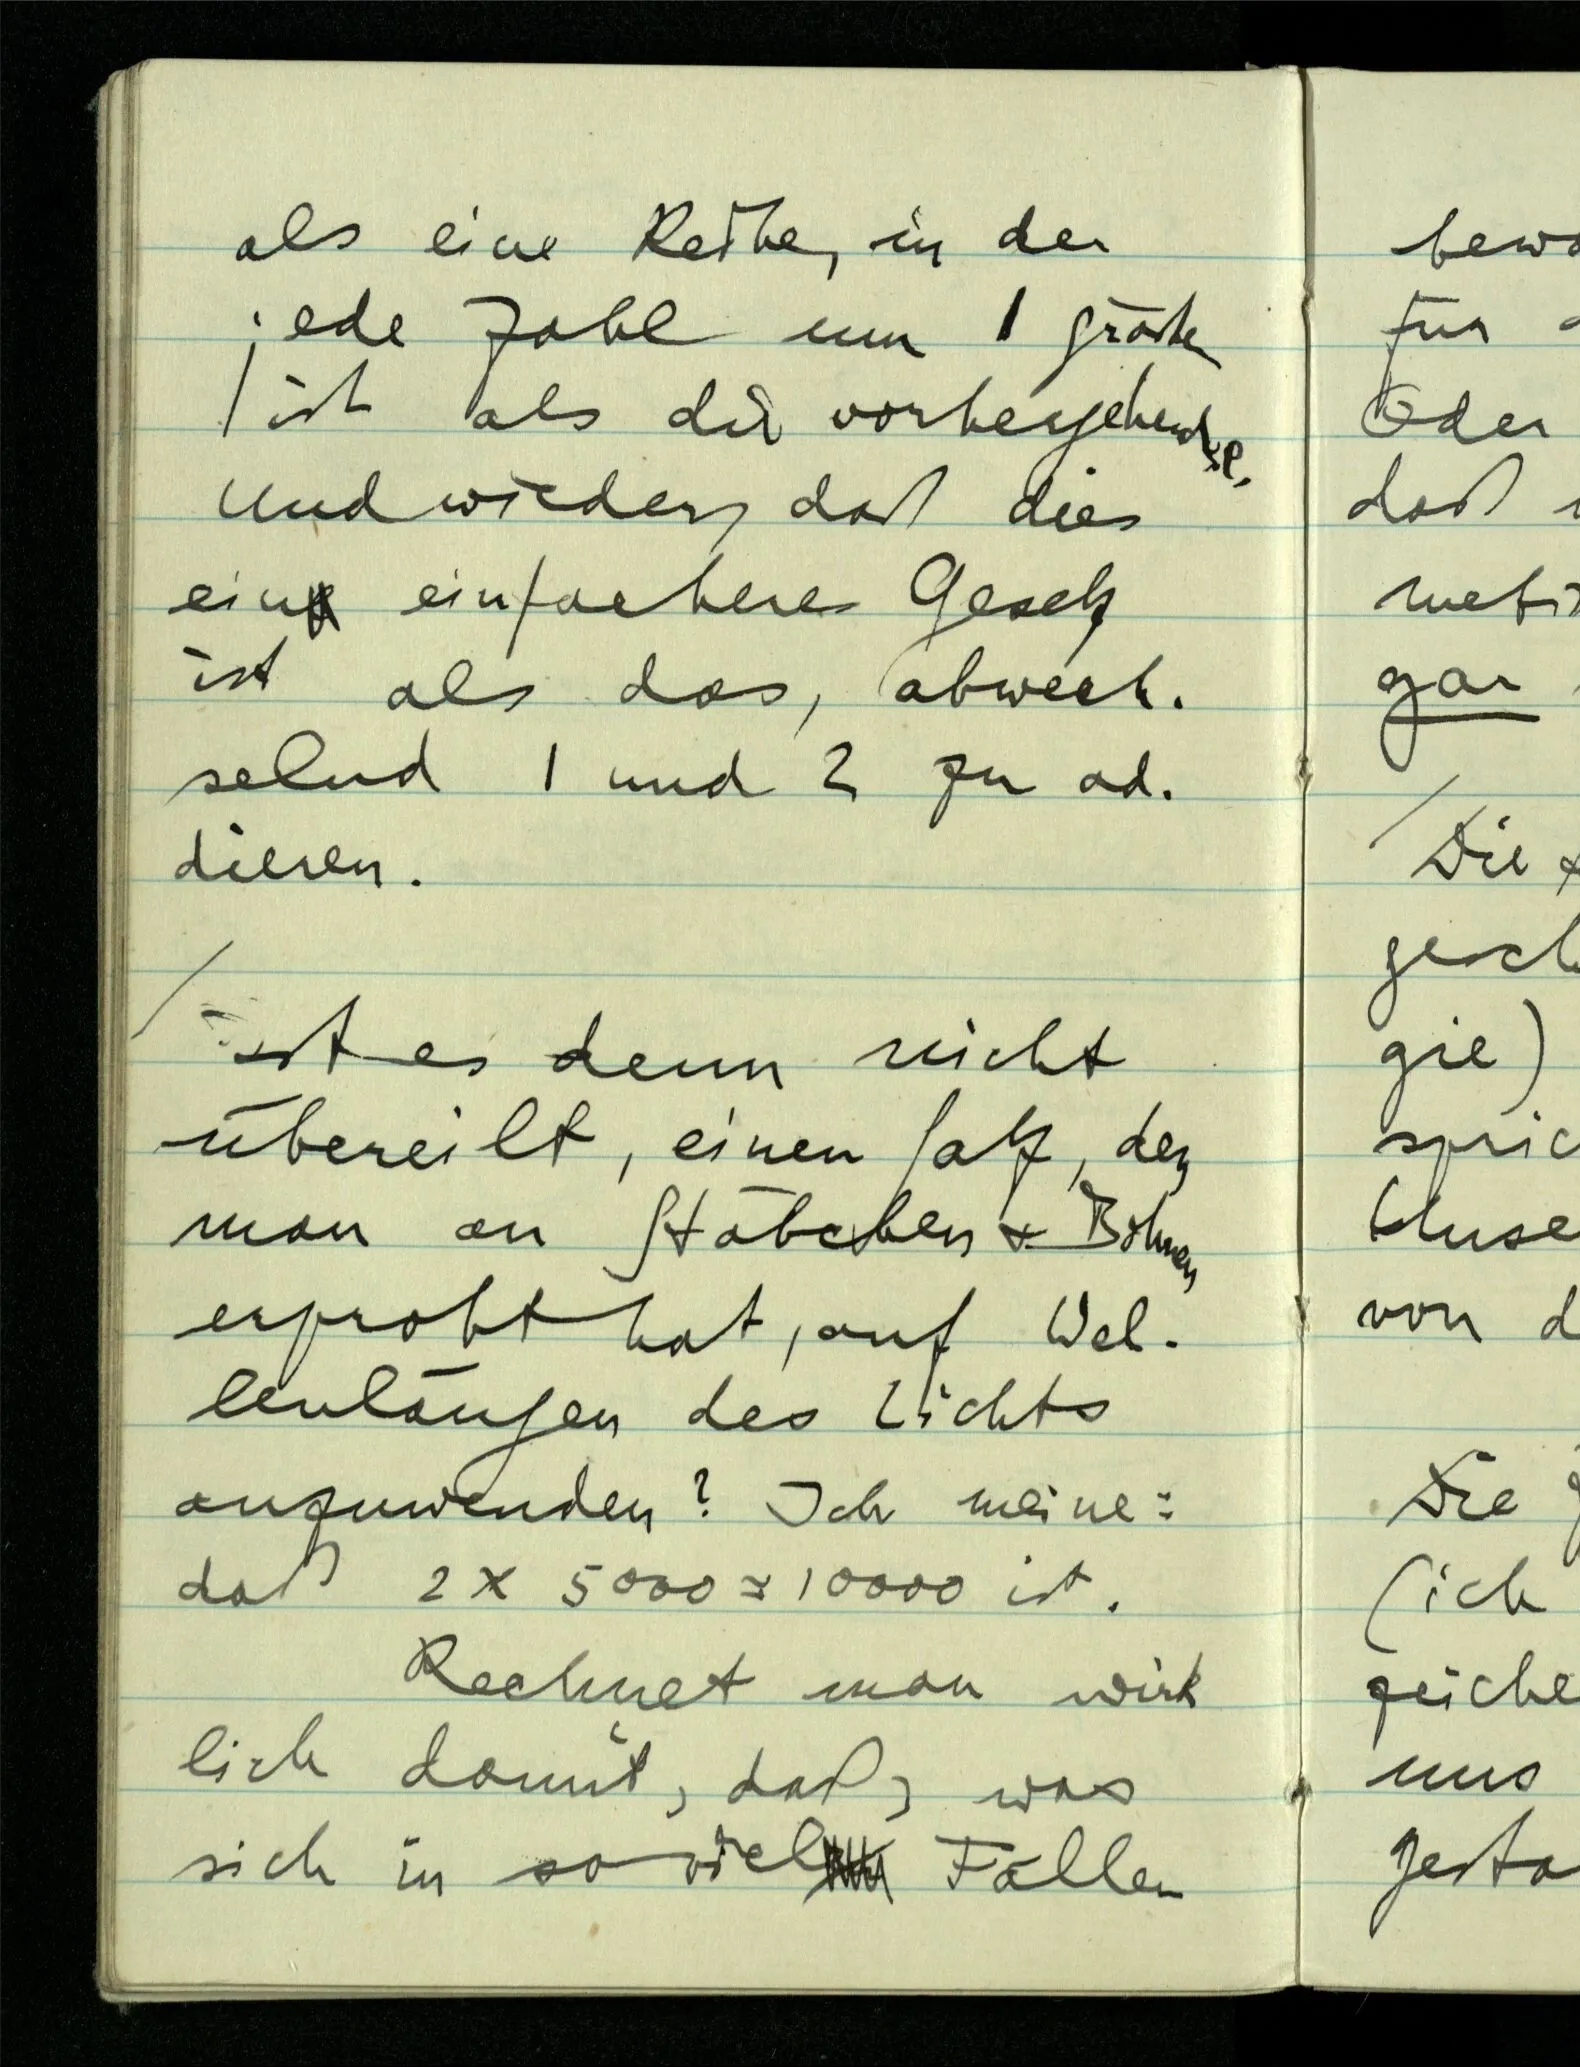 als eine Reihe, in der
jede Zahl um 1 größer
ist als die vorhergehende.
Und wieder, daß dies
ein einfacheres Gesetz
ist als das, abwech-
selnd 1 und 2 zu ad-
dieren.
Ist es denn nicht
übereilt, einen Satz, den
man an Stäbchen & Bohnen
erprobt hat, auf Wel-
lenlängen des Lichts
anzuwenden? Ich meine:
daß 2 x 5000 = 10000 ist.
Rechnet man wirk
lich damit, daß, was
sich in so viel Fällen
bewa
für
Oder
daß
metr
gar
Die
gesch
gie)
spric
unse
von d
Die
(ich
zeiche
uns
gesta